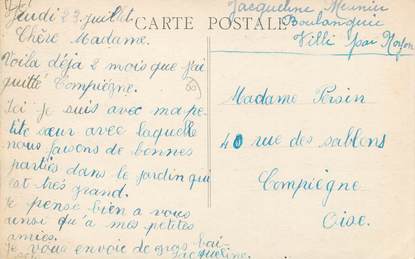 Jeudi 23 juillet
CARTE POSTALE
Chère Madame.
Voila déja 2 mois que j'ai
quitté Compiègne.
Ici je suis avec ma pe-
tite sœur avec laquelle
nous faisons de bonnes
parties dans le jardin qui
est très grand.
Je pense bien a vous
ainsi qu'a mes petites
amies.
Je vous envoie de gros bai
Jacqueline.
Jacqueline Meunier
Boulangerie
Villi par Noyon
Madame Persin
40 rue des sablons
Compiègne
Oise.